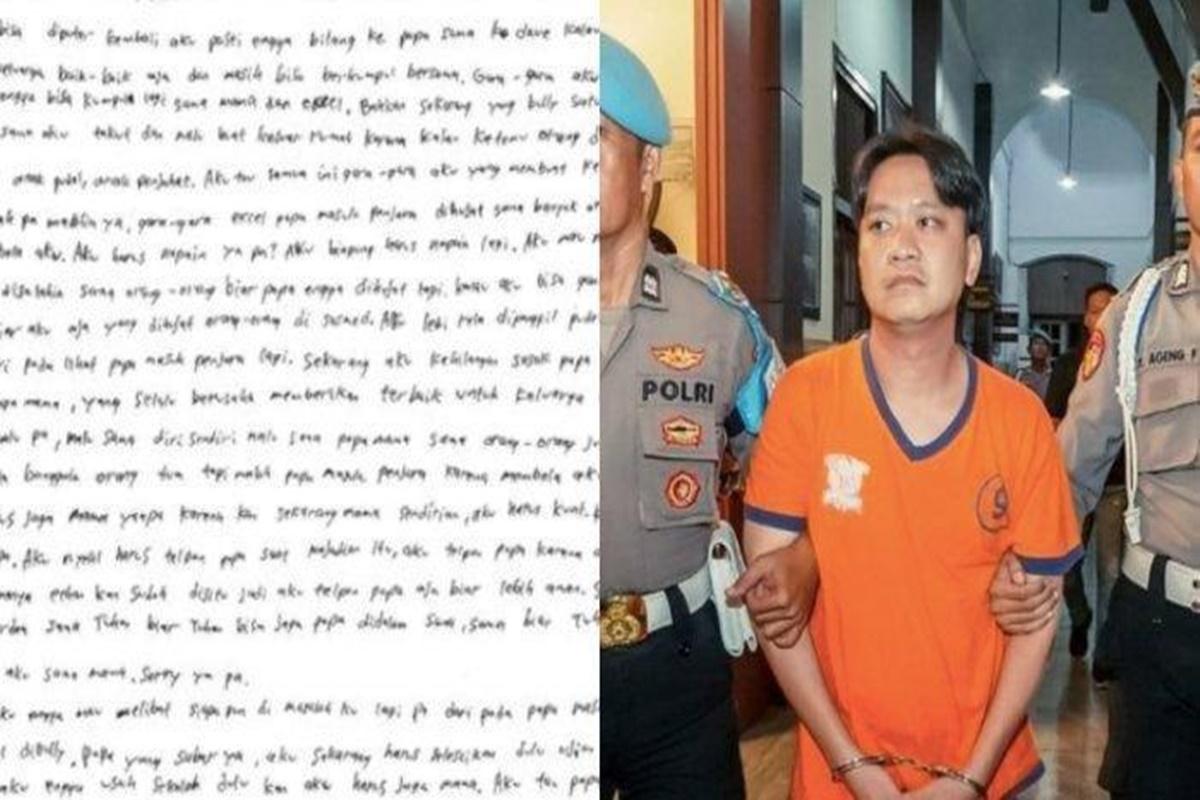 bisa diputer kembali, aku pasti engga bilang ke papa sama ko dave kalau
baik-baik aja dan masih bisa berkumpul bersama. Gara-gara aku
engga bisa kumpul lagi sama mama dan excel. Bahkan sekarang yang bully
sama aku takut dan malu buat keluar rumah karena kalau ketemu orang
anak pukul, anak penjahat. Aku tau semua ini gara-gara aku yang membuat
pa maafin ya, gara-gara excel papa masuk penjara dihujat sama banyak
bela aku. Aku harus ngapain ya pa? Aku bingung harus ngapain lagi. Aku mau
disalahin sama orang-orang biar papa engga dihujat lagi. kalau aku bisa
biar aku aja yang dihujat orang-orang di sosmed. Aku lebi rela dipanggil
dari pada lihat papa masuk penjara lagi. Sekarang aku kehilangan sosok papa
mama, yang selalu berusaha memberikan terbaik untuk keluarga
malu pa, malu sama diri sendiri malu sama papa mama sama orang-orang
banggain orang tua tapi malah papa masuk penjara karena membela aku
harus jaga mama yaa pa karena kan sekarang mama sendirian, aku harus kuat.
pa. Aku nyesel harus telpon papa saat kejadian itu, aku telpon papa karena
sudah disitu jadi aku telpon papa aja biar lebih aman.
sama Tuhan biar Tuhan bisa jaga papa didalam sana, sama biar
aku sama mama. Sorry ya pa.
aku engga mau melibat siapapun di masalah ku lagi pa dari pada papa
dibully. Papa yang sabar ya, aku sekarang harus selesaikan dulu ujian
aku engga usah sekolah dulu kan aku harus jaga mama. Aku tau papa
POLRI
AGENG F